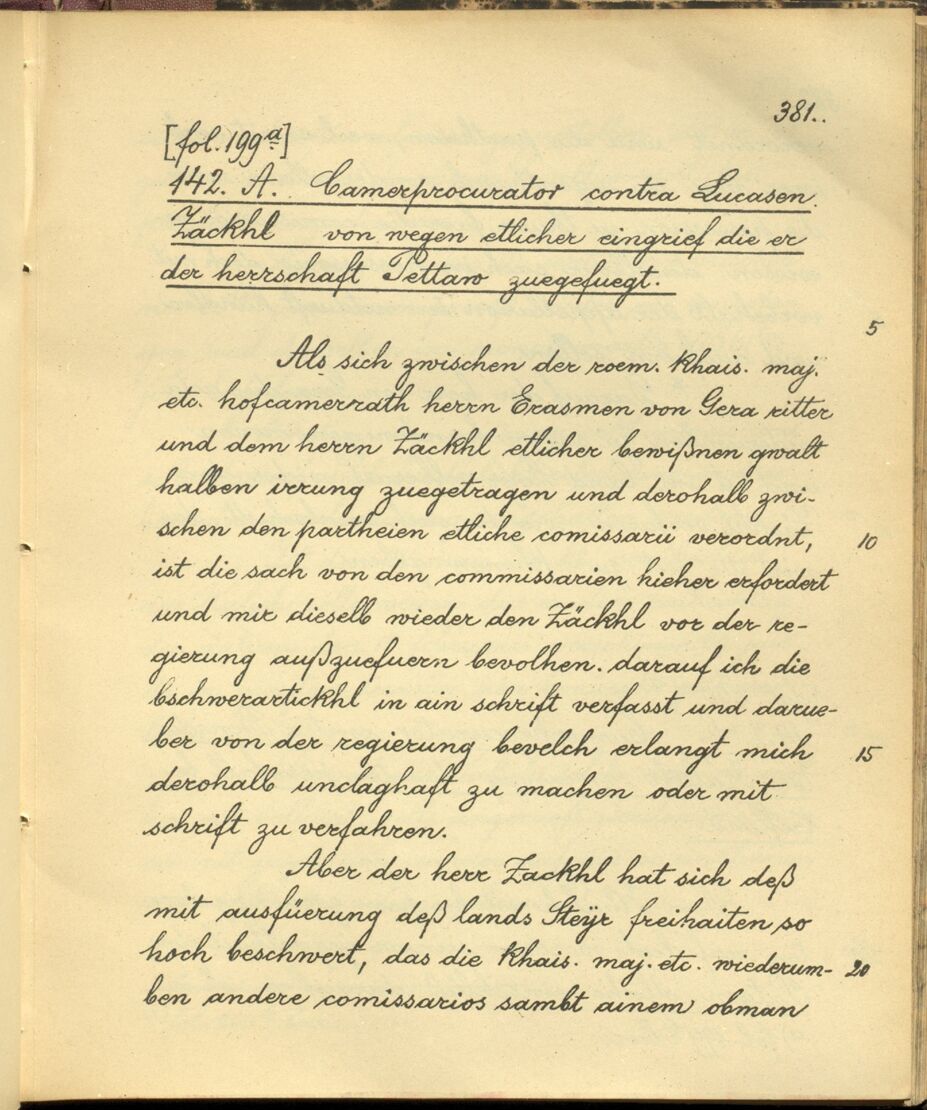 381..
[fol. 199a]
142. A. Camerprocurator contra Lucasen
Zäckhl von wegen etlicher eingrief die er
der herrschaft Pettaw zuegefuegt.
5
Als sich zwischen der roem. khais. maj.
etc. hofcamerrath herrn Erasmen von Gera ritter
und dem herrn Zäckhl etlicher bewißnen gwalt
halben irrung zuegetragen und derohalb zwi-
schen den partheien etliche comissarii verordnt, 10
ist die sach von den commissarien hieher erfordert
und mir dieselb wieder den Zäckhl vor der re-
gierung außzuefuern bevolhen. darauf ich die
bschwerartickhl in ain schrift verfasst und darue-
ber von der regierung bevelch erlangt mich 15
derohalb unclaghaft zu machen oder mit
schrift zu verfahren.
Aber der herr Zackhl hat sich deß
mit ausfüerung deß lands Steÿr freihaiten so
hoch beschwert, das die khais. maj. etc. wiederum- 20
ben andere comissarios sambt ainem obman